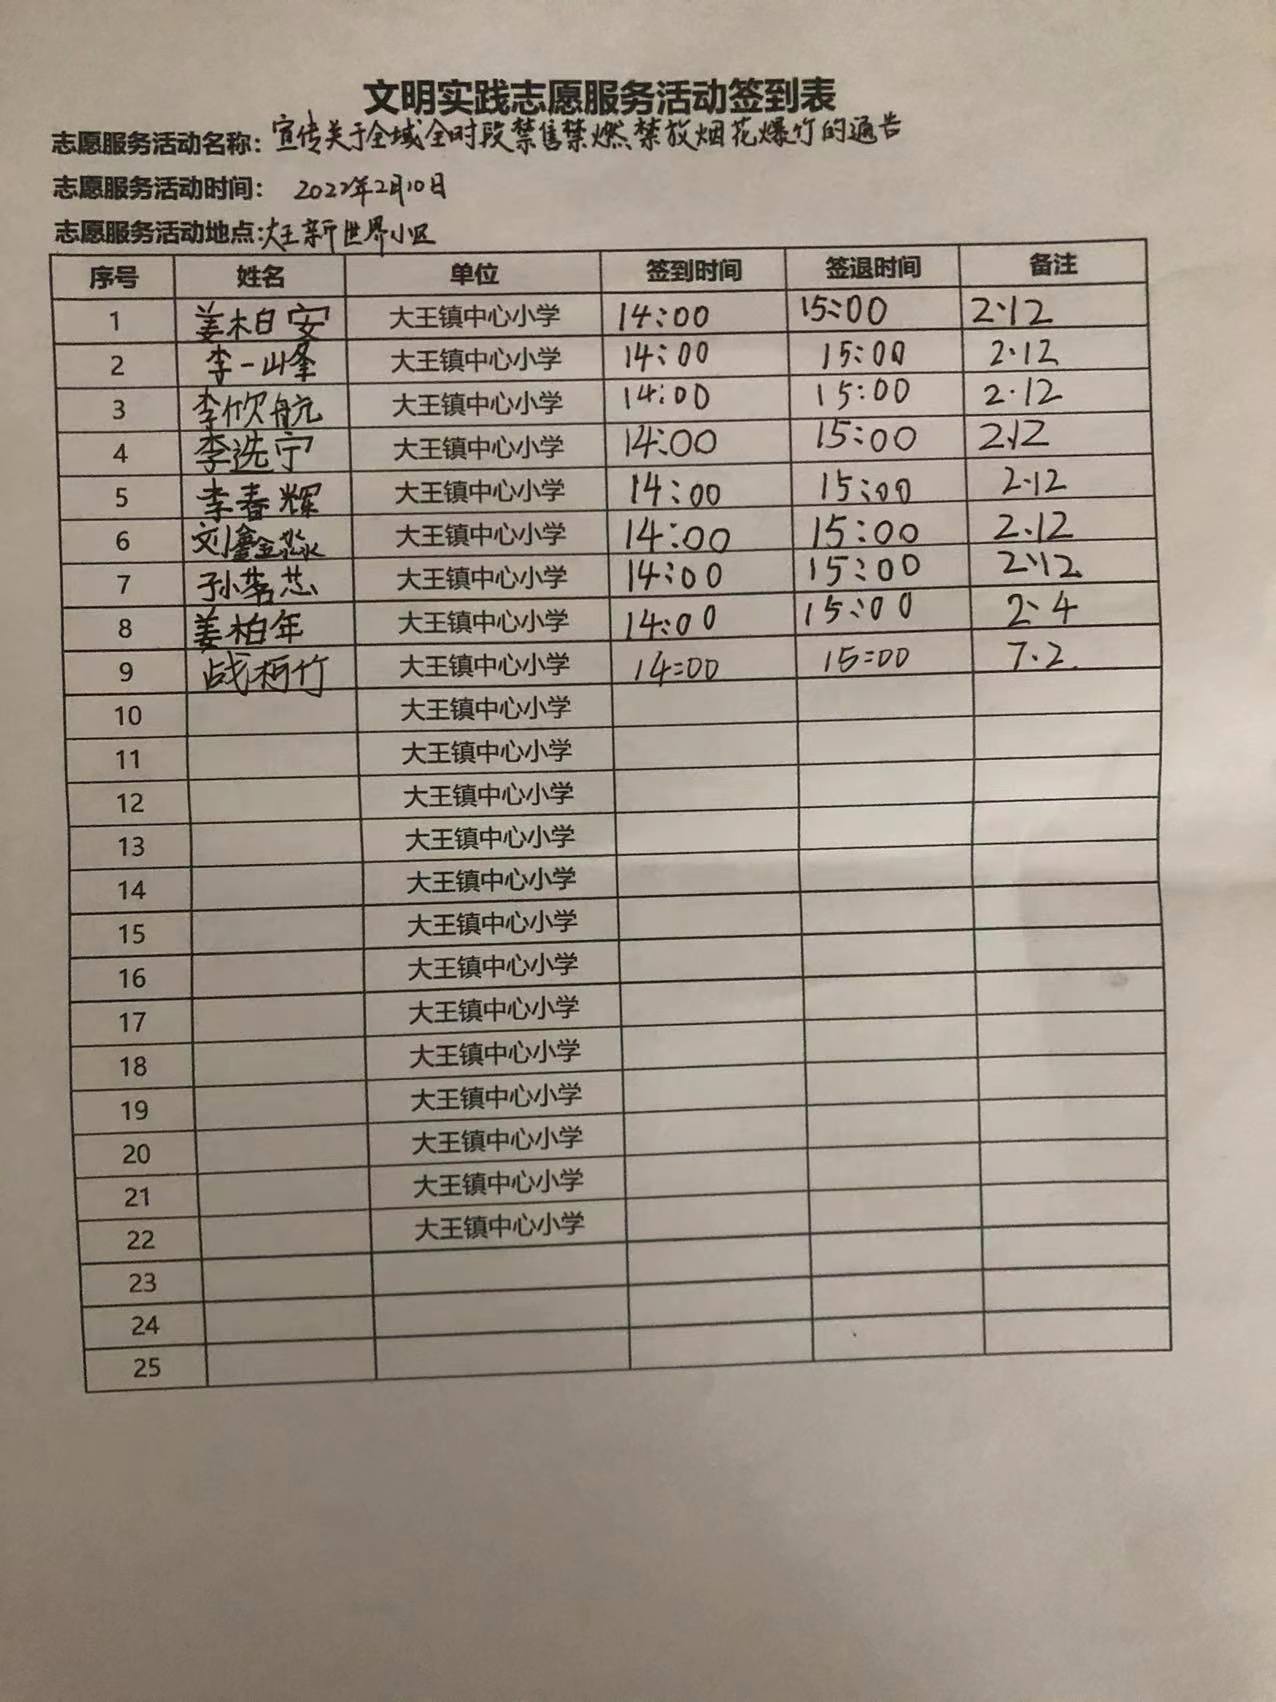 文明实践志愿服务活动签到表
志愿服务活动名称: 宣传关于全域全时段禁售禁燃禁放烟花爆竹的通告
志愿服务活动时间: 2022年2月10日
志愿服务活动地点: 大王新世界小区
序号 姓名 单位 签到时间 签退时间 备注
1 姜柏安 大王镇中心小学 14:00 15:00 2.12
2 李一峰 大王镇中心小学 14:00 15:00 2.12
3 李欣航 大王镇中心小学 14:00 15:00 2.12
4 李选宁 大王镇中心小学 14:00 15:00 2.12
5 李春辉 大王镇中心小学 14:00 15:00 2.12
6 刘鑫淼 大王镇中心小学 14:00 15:00 2.12
7 孙茗芯 大王镇中心小学 14:00 15:00 2.12
8 姜柏年 大王镇中心小学 14:00 15:00 2.4
9 战柯竹 大王镇中心小学 14:00 15:00 7.2
10 大王镇中心小学
11 大王镇中心小学
12 大王镇中心小学
13 大王镇中心小学
14 大王镇中心小学
15 大王镇中心小学
16 大王镇中心小学
17 大王镇中心小学
18 大王镇中心小学
19 大王镇中心小学
20 大王镇中心小学
21 大王镇中心小学
22 大王镇中心小学
23
24
25